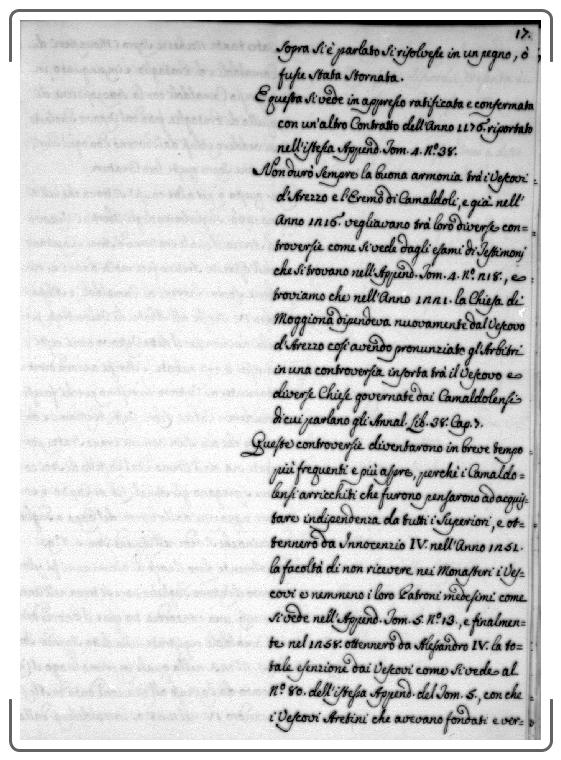 17.
sopra si è parlato si risolvesse in un pegno, ò
fusse stata stornata.
E questa si vede in appresso ratificata e confermata
con un'altro Contratto dell'Anno 1176. riportato
nell'istessa Append. Tom. 4. N.º 38.
Non durò sempre la buona armonia trà i Vescovi
d'Arezzo e l'Eremo di Camaldoli, e già nell'
Anno 1216. vegliavano trà loro diverse con=
troversie come si vede dagli esami di Testimonj
che si trovano nell'Append. Tom. 4. N.º 218., e
troviamo che nell'Anno 1221. la Chiesa di
Moggiona dipendeva nuovamente dal Vescovo
d'Arezzo così avendo pronunziato gl'Arbitri
in una controversia insorta trà il Vescovo e
diverse Chiese governate dai Camaldolensi
di cui parlano gli Annal. Lib. 38. Cap. 7.
Queste controversie diventarono in breve tempo
più frequenti e più aspre, perchè i Camaldo=
lensi arricchiti che furono pensarono ad acquis=
tare indipendenza da tutti i Superiori, e ot=
tennero da Innocenzio IV. nell'Anno 1251.
la facoltà di non ricevere nei Monasteri i Ves=
covi e nemmeno i loro Patroni medesimi come
si vede nell'Append. Tom. 5. N.º 13., e finalmen=
te nel 1258. ottennero da Alessandro IV. la to=
tale esenzione dai Vescovi come si vede al
N.º 80. dell'istessa Append. del Tom. 5., con che
i Vescovi Aretini che avevano fondati e ver=